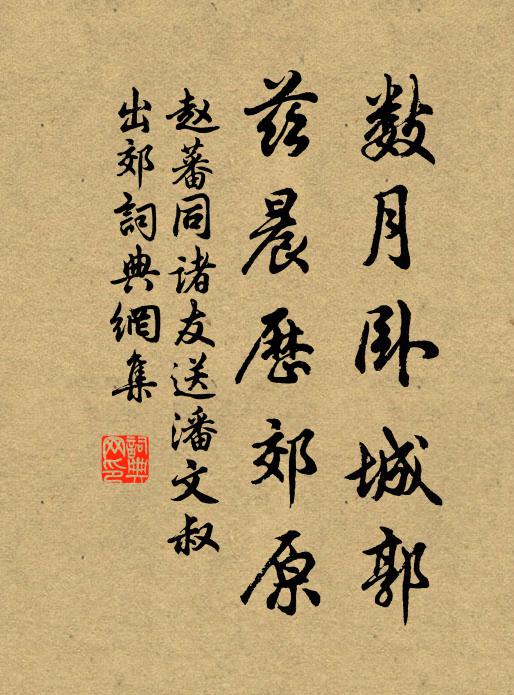 数月卧城郭
兹晨历郊原
赵蕃同诸友送潘文叔
出郊词典網集
詞典網印